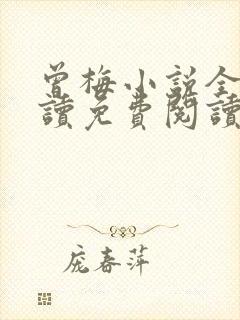 曾梅小說全
讀免費閱讀
庞春萍